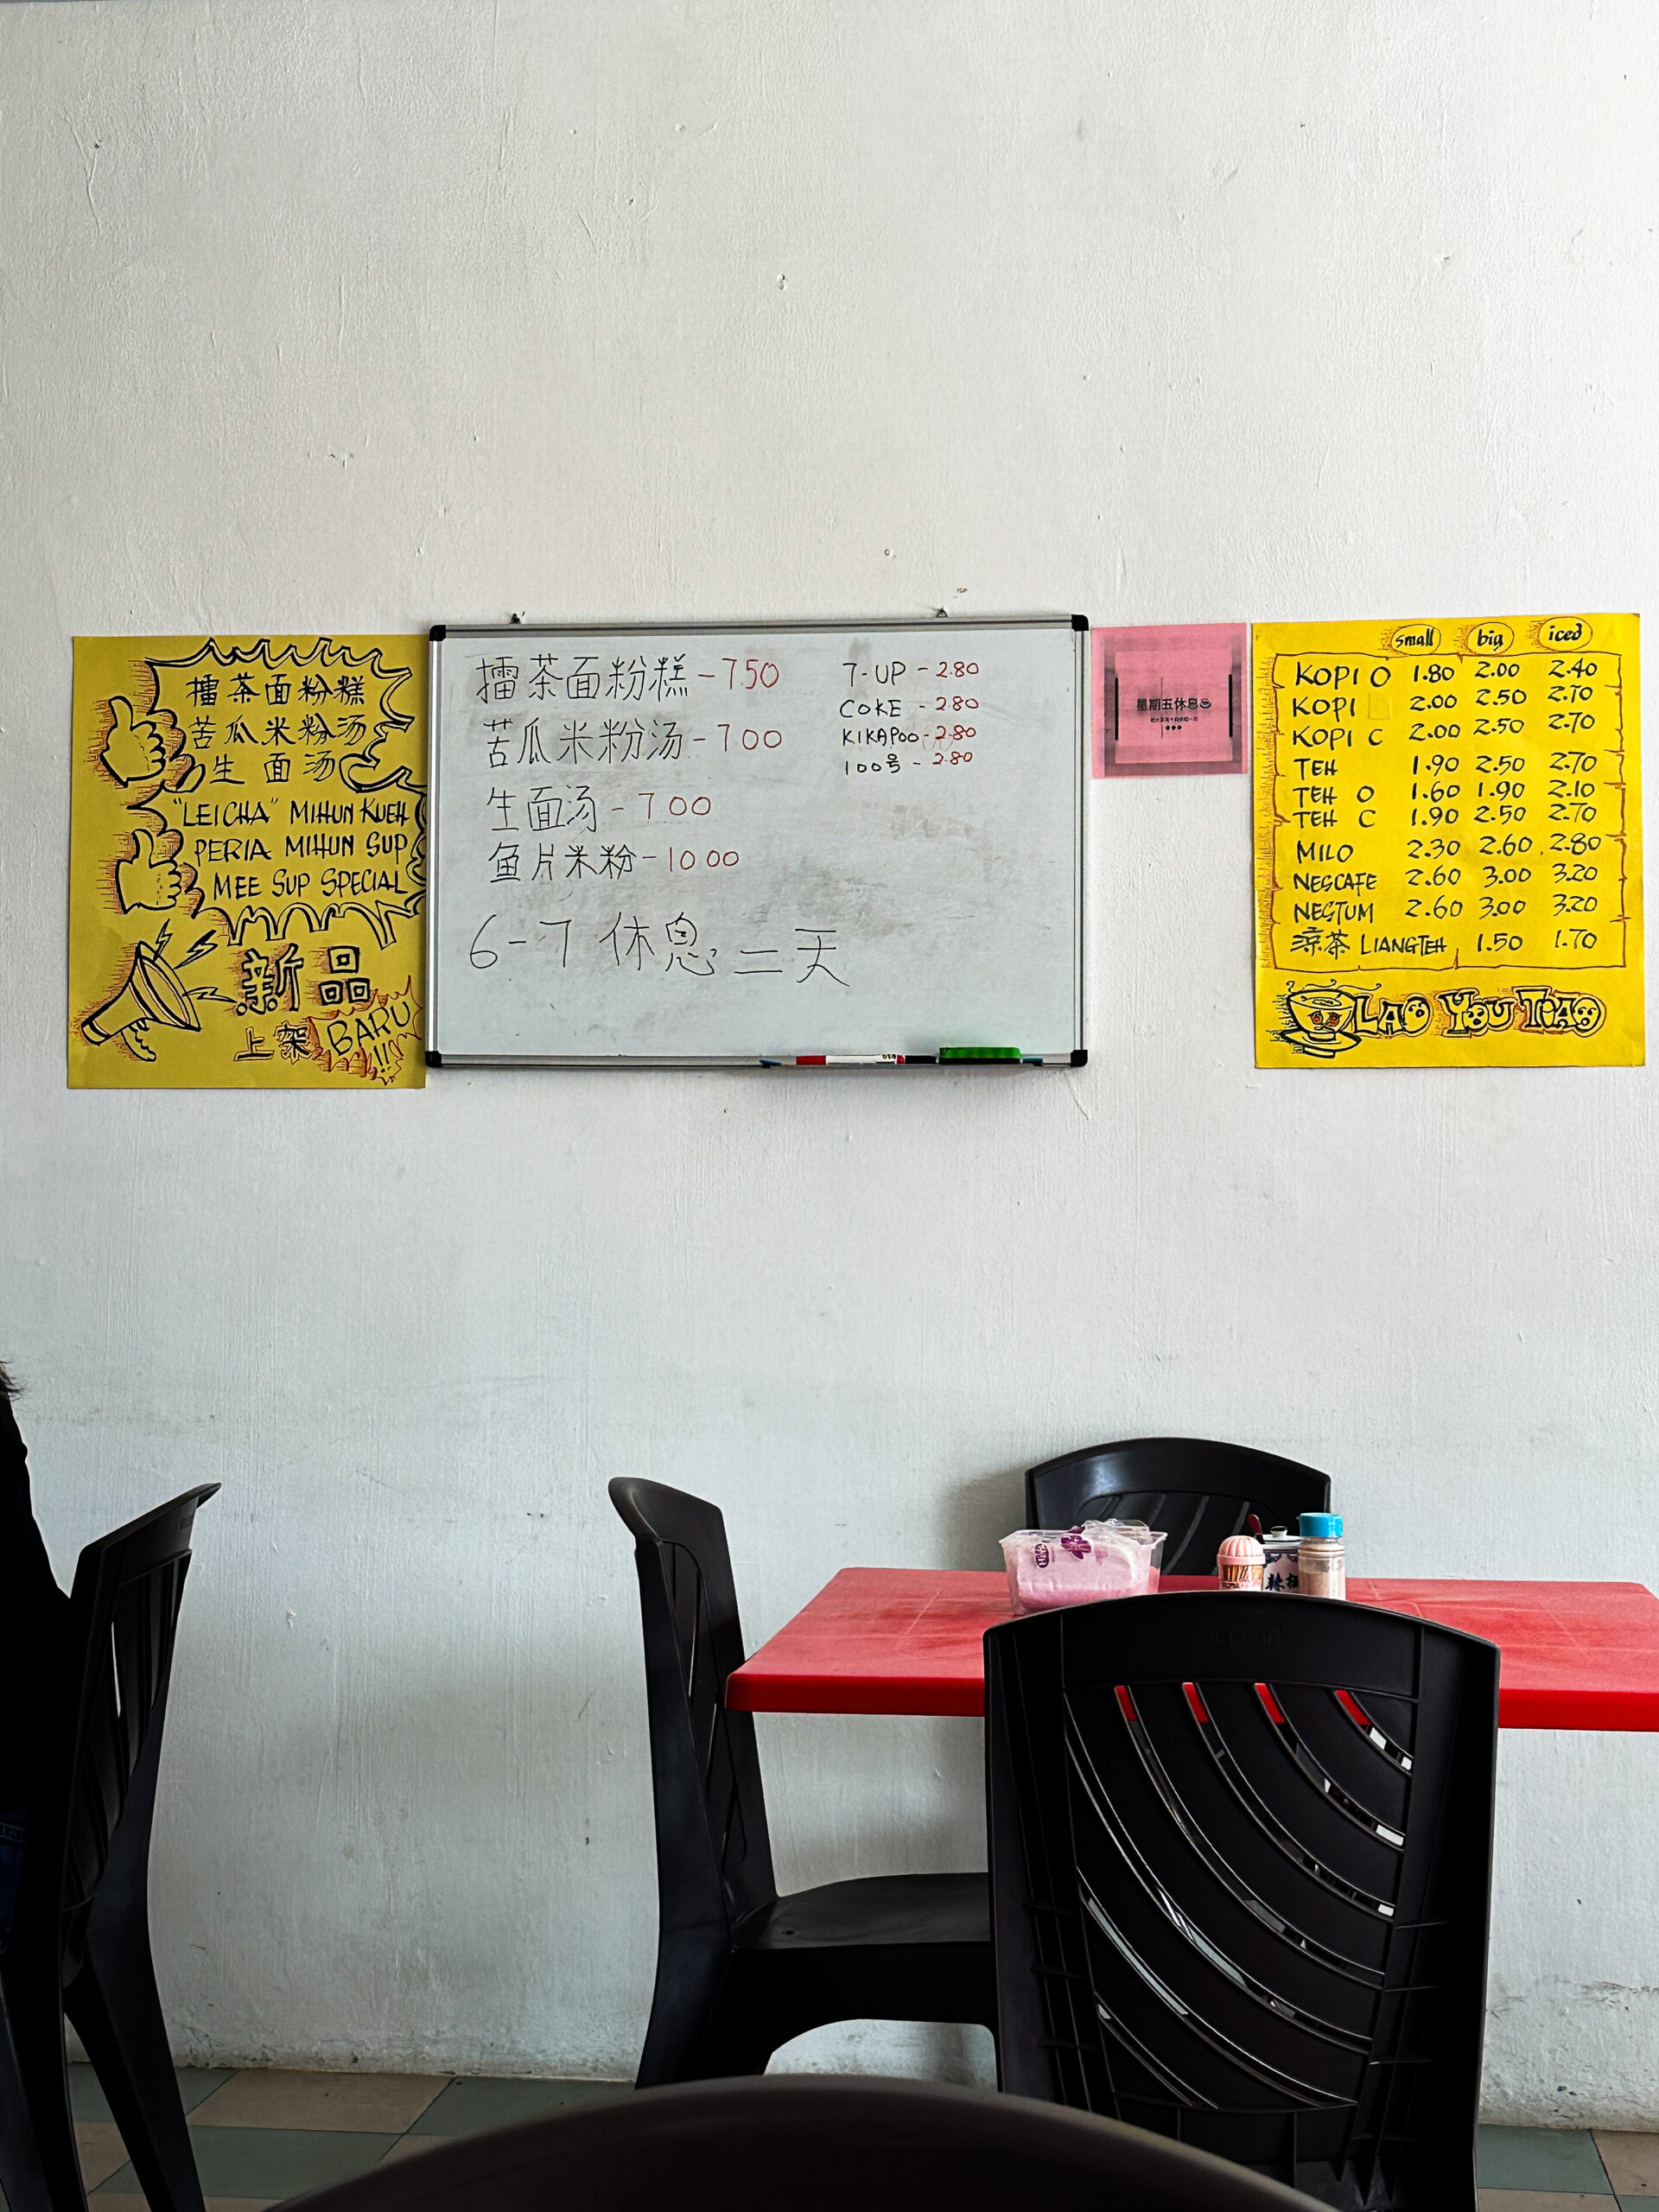 擂茶面粉糕
苦瓜米粉汤
生面汤
"LEICHA" MIHUN KUEH
PERIA MIHUN SUP
MEE SUP SPECIAL
新品
上架 BARU!!
擂茶面粉糕-750
苦瓜米粉汤-700
生面汤-700
鱼片米粉-1000
6-7 休息二天
7-UP - 2.80
COKE - 2.80
KIKAPOO - 2.80
100号 - 2.80
星期五休息
small big iced
KOPI O 1.80 2.00 2.40
KOPI 2.00 2.50 2.70
KOPI C 2.00 2.50 2.70
TEH 1.90 2.50 2.70
TEH O 1.60 1.90 2.10
TEH C 1.90 2.50 2.70
MILO 2.30 2.60 2.80
NESCAFE 2.60 3.00 3.20
NESTUM 2.60 3.00 3.20
凉茶 LIANGTEH 1.50 1.70
LAO YOU TIAO